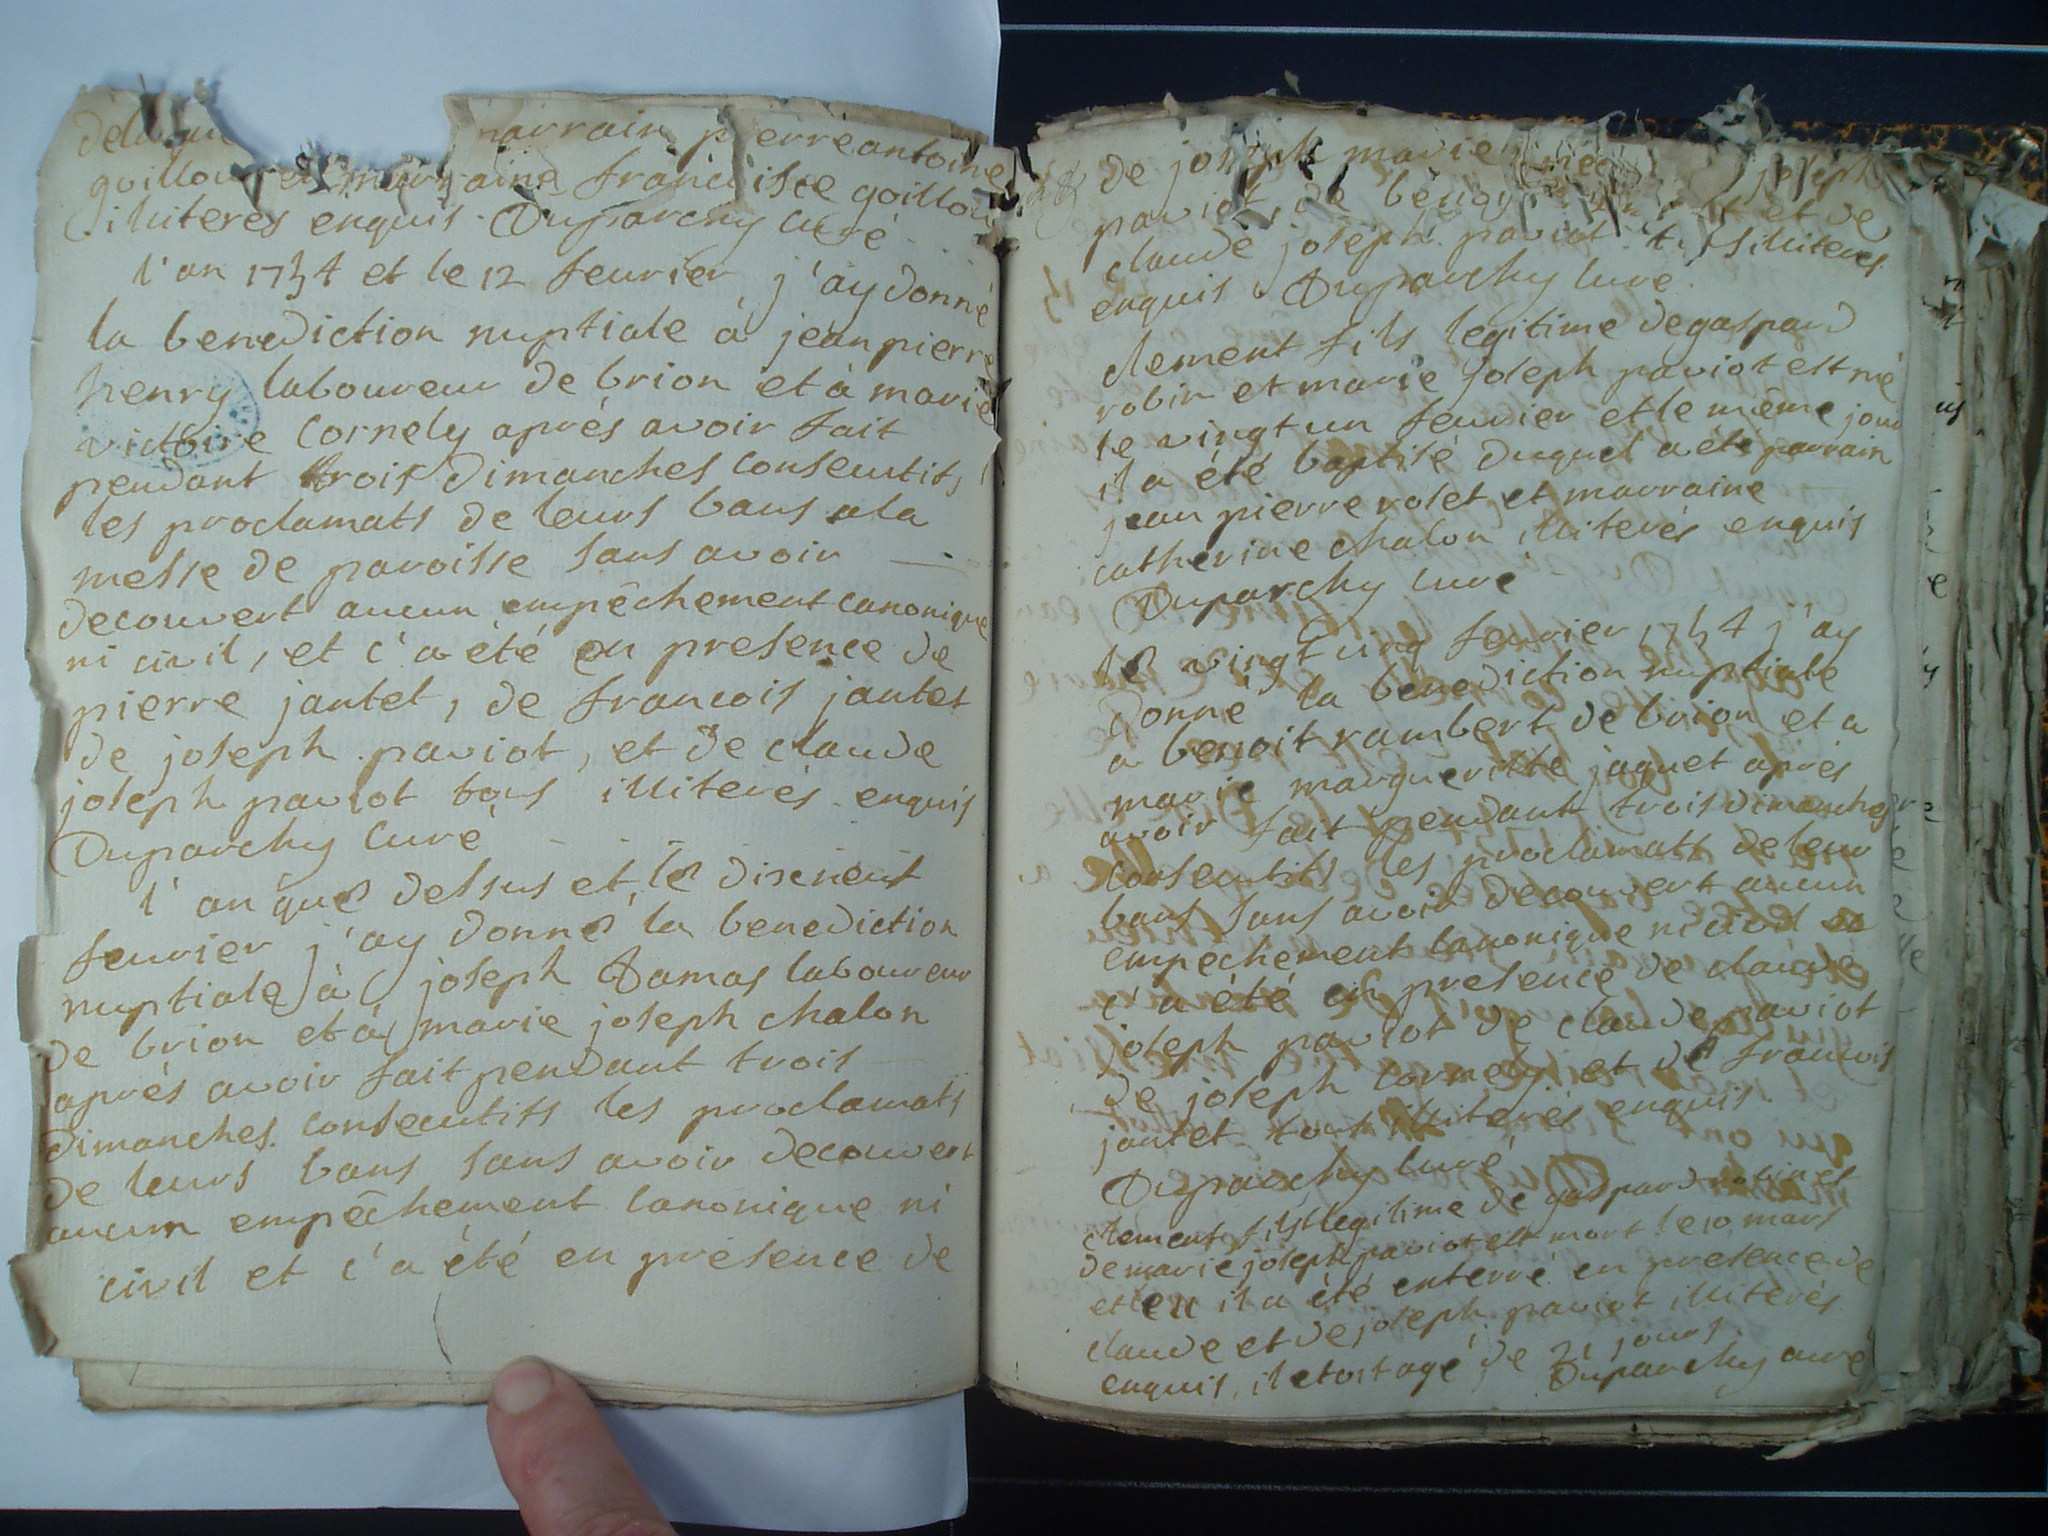 parrain pierre antoine
goillou et marraine francoisse goillou
illiterés enquis. Duparchy curé
l'an 1754 et le 12 feurier j'ay donné
la benediction nuptiale à jean pierre
henry laboureur de brion et à marie
victoire Cornely aprés avoir fait
pendant trois Dimanches consecutifs
les proclamats de leurs bans a la
messe de paroisse sans avoir
decouvert aucun empêchement canonique
ni civil, et c'a été en presence de
pierre jantet, de francois jantet
de joseph paviot, et de claude
joseph paviot tous illiterés enquis
Duparchy curé
l'an que dessus et le diseneuf
feurier j'ay donné la benediction
nuptiale à joseph Damas laboureur
de brion et à marie joseph chalon
aprés avoir fait pendant trois
dimanches consecutifs les proclamats
de leurs bans sans avoir decouvert
aucun empêchement canonique ni
civil et c'a été en présence de
de joseph marie joseph
paviot, de et de
claude joseph paviot illiteres
enquis Duparchy curé
clement fils legitime de gaspard
robin et marie joseph paviot est né
le vingt un feurier et le même jour
il a été baptisé duquel a été parrain
jean pierre rolet et marraine
catherine chalon illiterés enquis
Duparchy curé
le vingt cinq feurier 1754 j'ay
donné la benediction nuptiale
a benoit rambert de brion et a
marie margueritte jaquet aprés
avoir fait pendant trois dimanches
consecutifs les proclamats de leur
bans sans avoir decouvert aucun
empechement canonique ni civil
c'a été en presence de claude
joseph paviot de claude paviot
de joseph cornely et de francois
jantet tous illiterés enquis.
Duparchy curé
clement fils legitime de gaspard robin et
de marie joseph paviot est mort le 10 mars
et le 11 il a été enterré en presence de
claude et de joseph paviot illiterés
enquis, il etoit agé de 21 jours.
Duparchy curé